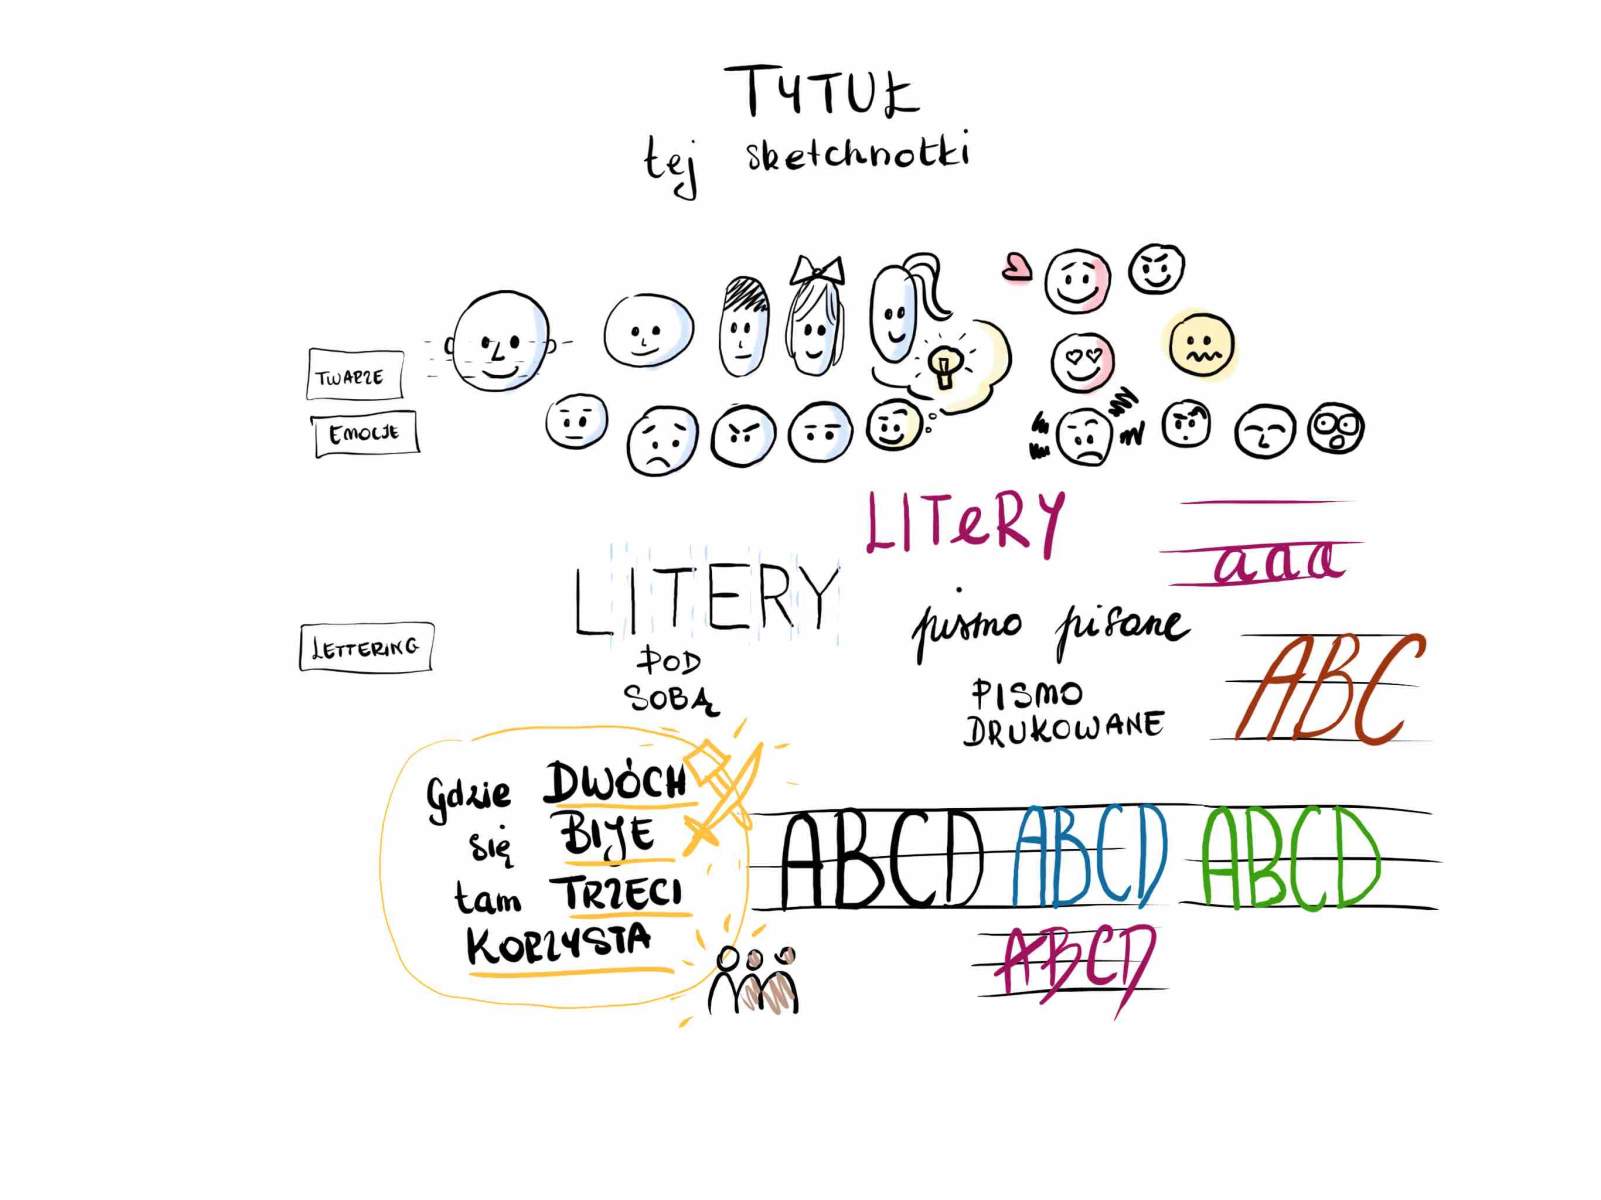 TYTUŁ
tej sketchnotki
TWARZE
EMOCJE
LITERY
aaa
LITERY
LETTERING
POD
SOBĄ
pismo pisane
PISMO
DRUKOWANE
ABC
Gdzie DWÓCH
się BIJE
tam TRZECI
KORZYSTA
ABCD ABCD ABCD
ABCD